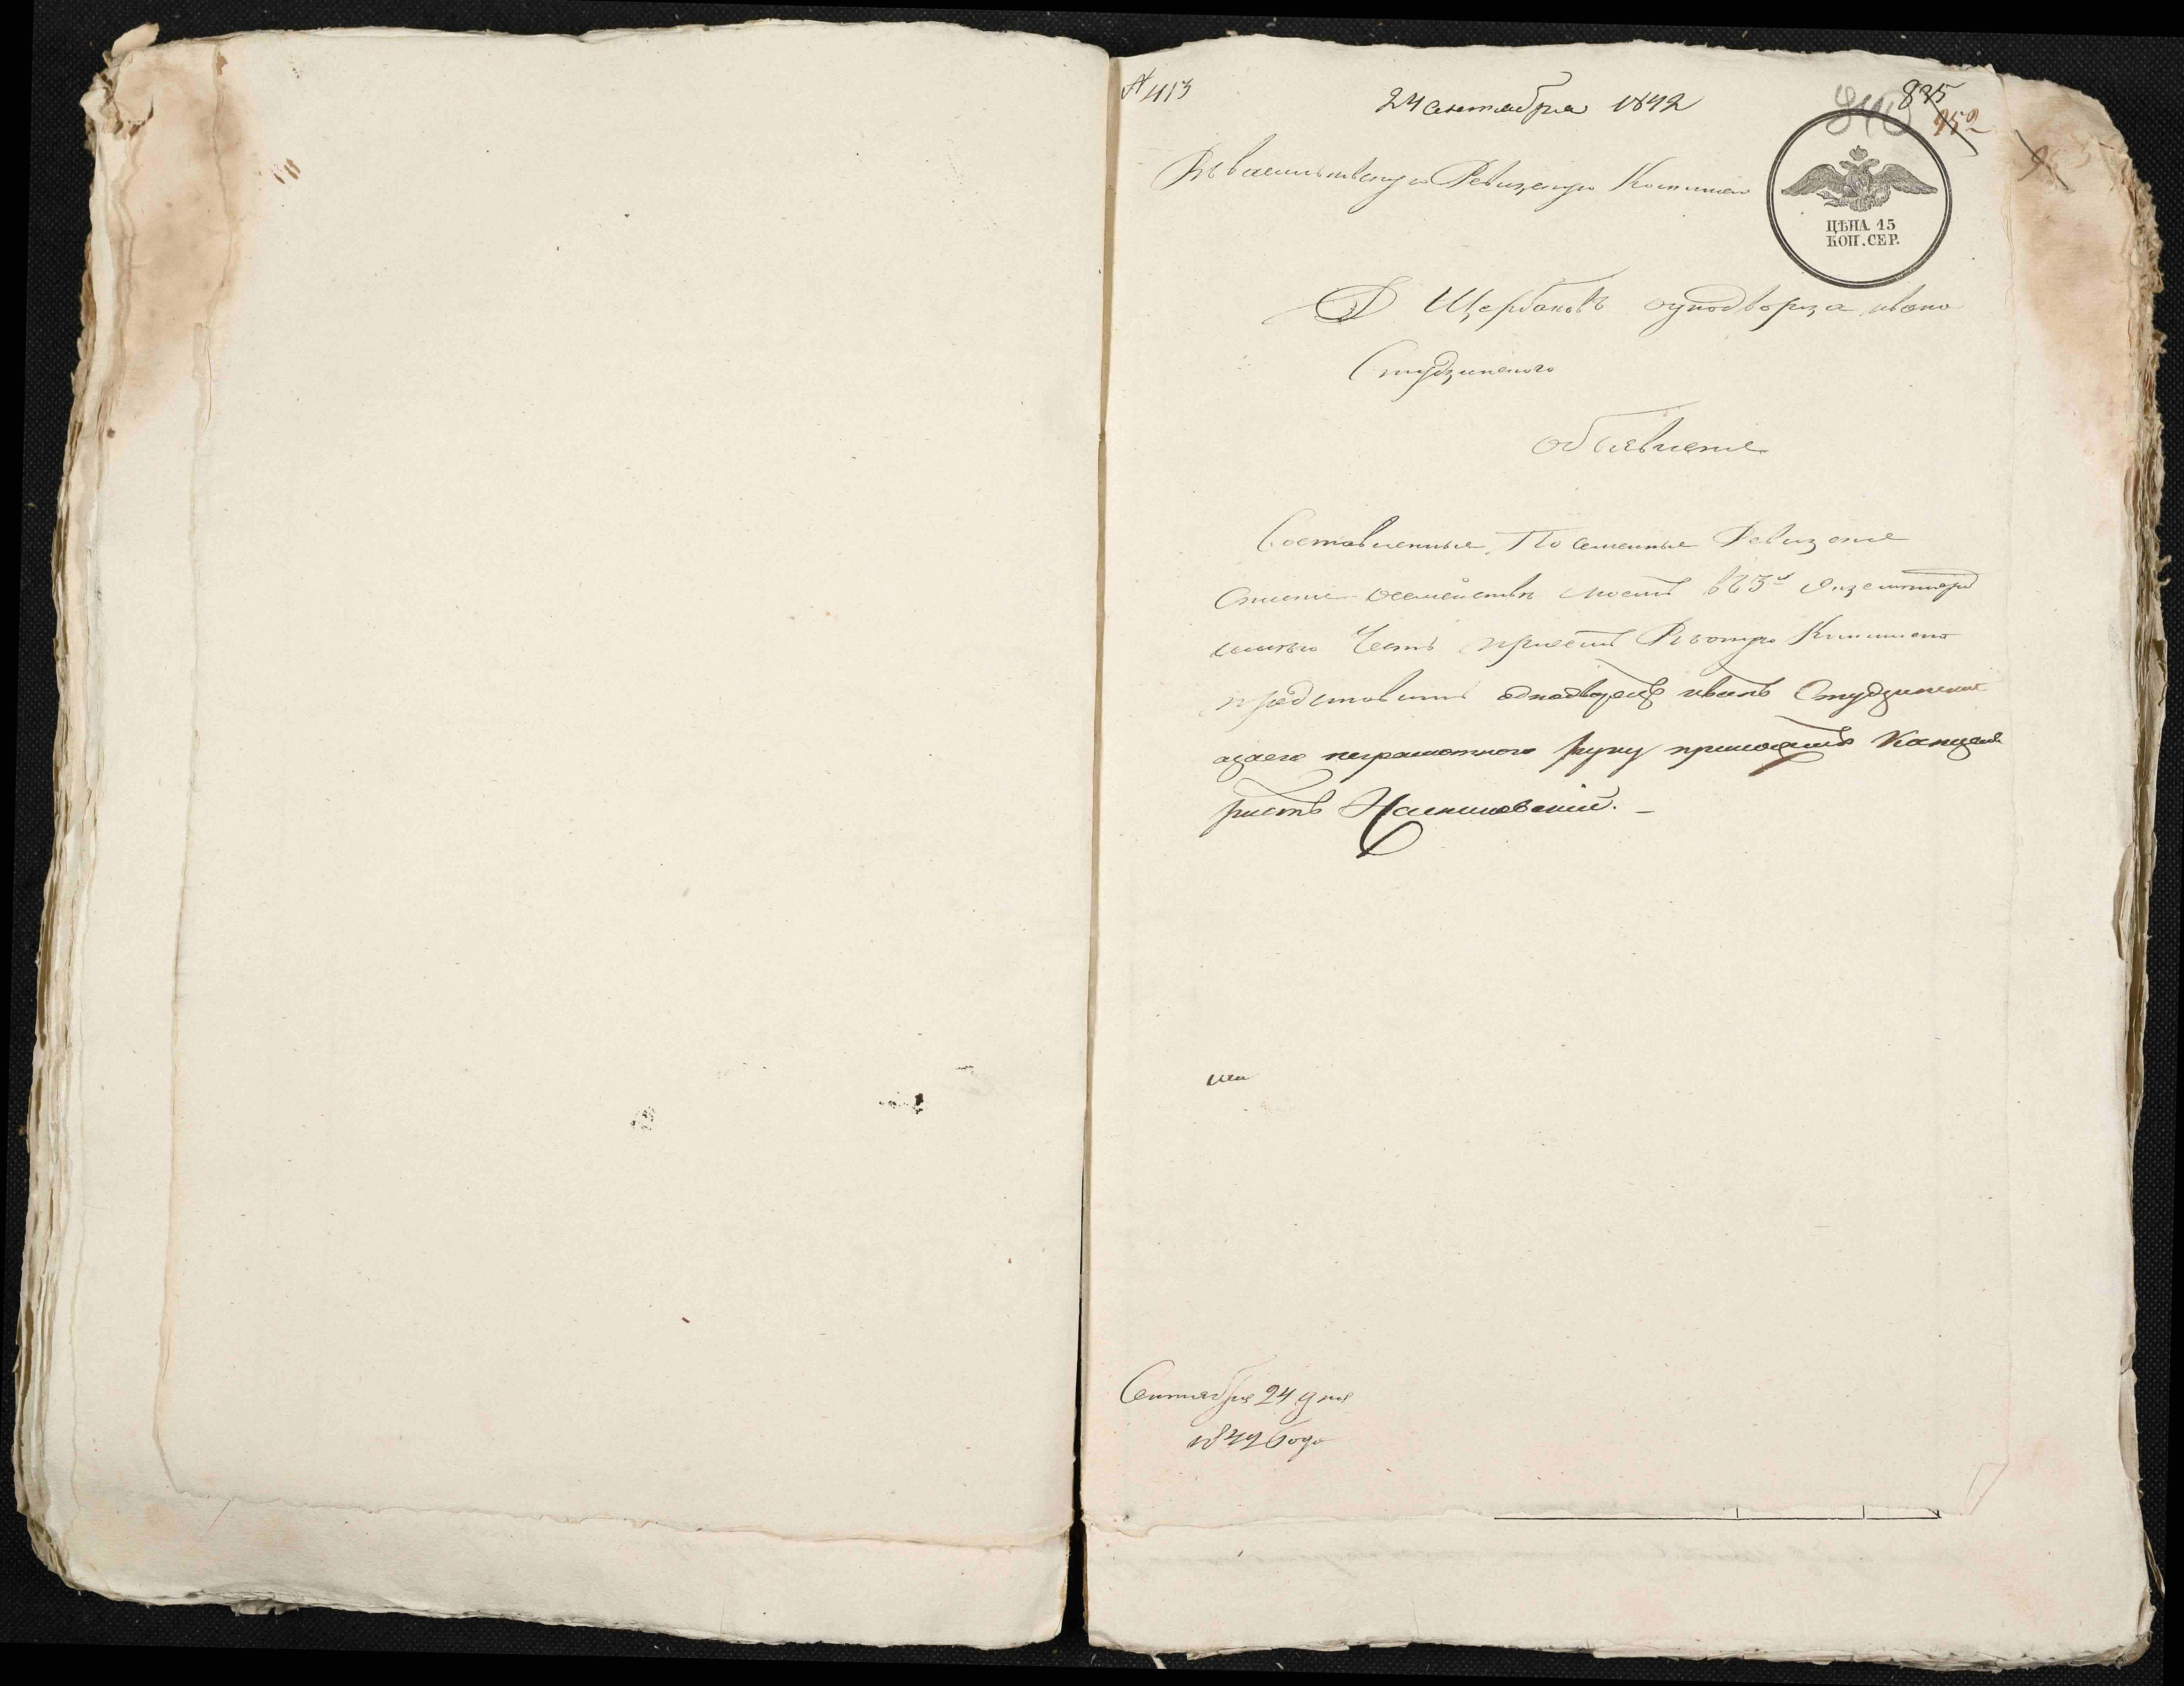 № 413
24 сентября 1842
835
840
952
Въ васильковскую Ревизскую Комисию
ЦѢНА 15
КОП. СЕР.
Д Щербаковъ одиодворца ивана
Студзинского
обьявление
Составленные Посемейные Ревизские
Списки осемействѣ моемъ въ 3х Экземпляра
имѣю Честь присемъ Въоную Комисию
представить однодворецъ иванъ Студзинский
азаего неграмотного руку приложилъ Канцеля
ристъ
Сентября 24 дня
1842 Года